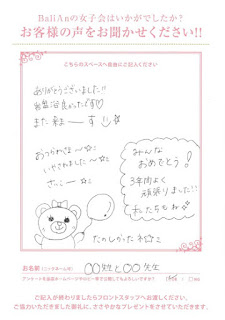 BaliAnの女子会はいかがでしたか?
お客様の声をお聞かせください!!
こちらのスペースへ自由にご記入ください
ありがとうございました!!
お風呂良かったです♡
また来まーす
おつかれさま〜☆
いやされました〜☆
さいこー☆
みんな
おめでとう!
3年間よく
頑張りました!!
私たちもね
たのしかったね☆
お名前(ニックネーム可)
〇〇姓と〇〇先生
アンケートを当店ホームページやロビー等で公開してもよろしいですか?
ご記入が終わりましたらフロントスタッフへお渡しください。
ご協力いただきました御礼に、ささやかなプレゼントをさせていただきます。